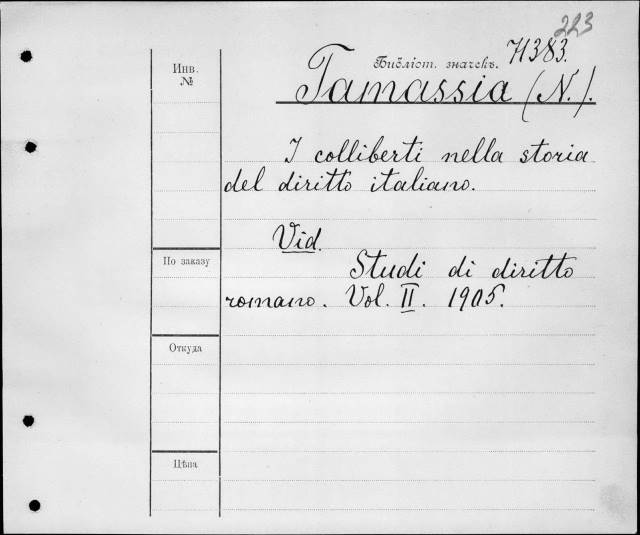 223
Инв.
№
Библіот. значекъ. 71383.
Tamassia (N.).
I colliberti nella storia
del diritto italiano.
Vid.
По заказу
Studi di diritto
romano. Vol. II. 1905.
Откуда
Цѣна